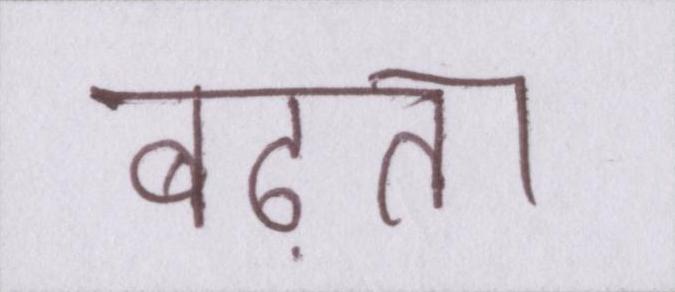 बढ़ता